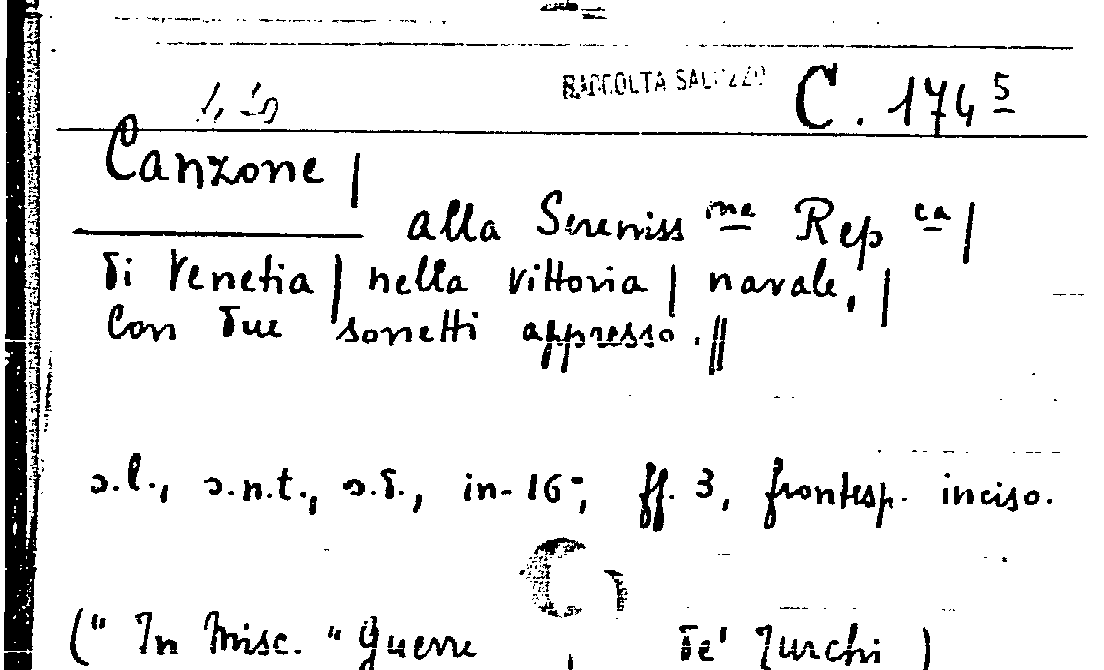 RACCOLTA SALUZZO C. 174 5
Canzone |
alla Sereniss ma Rep ca |
di Venetia | nella vittoria | navale, |
con due sonetti appresso. ||
s.l., s.n.t., s.d., in-16°, ff. 3, frontesp. inciso.
(" In Misc. " Guerre de' Turchi )